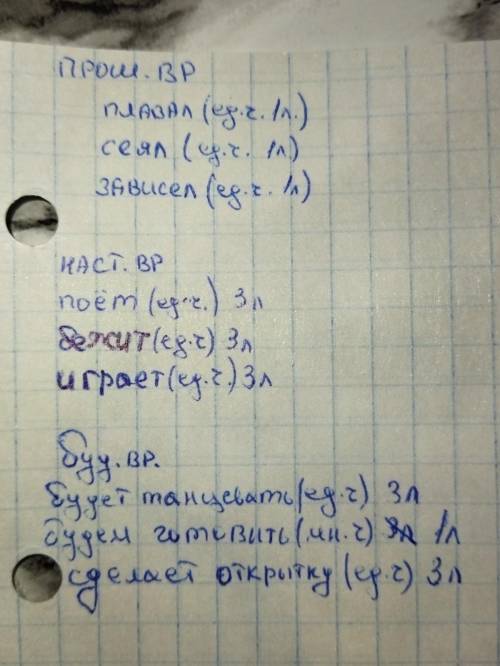 ПРОШ. ВР
ПЛАВАЛ (ед.ч. 1л.)
СЕЯЛ (ед.ч. 1л)
ЗАВИСЕЛ (ед.ч. 1л)
НАСТ. ВР
поёт (ед.ч.) 3л
бежит (ед.ч) 3л
играет (ед.ч.) 3л
Буд. ВР.
будет танцевать (ед.ч) 3л
будем готовить (мн.ч) 1л
сделает открытку (ед.ч) 3л